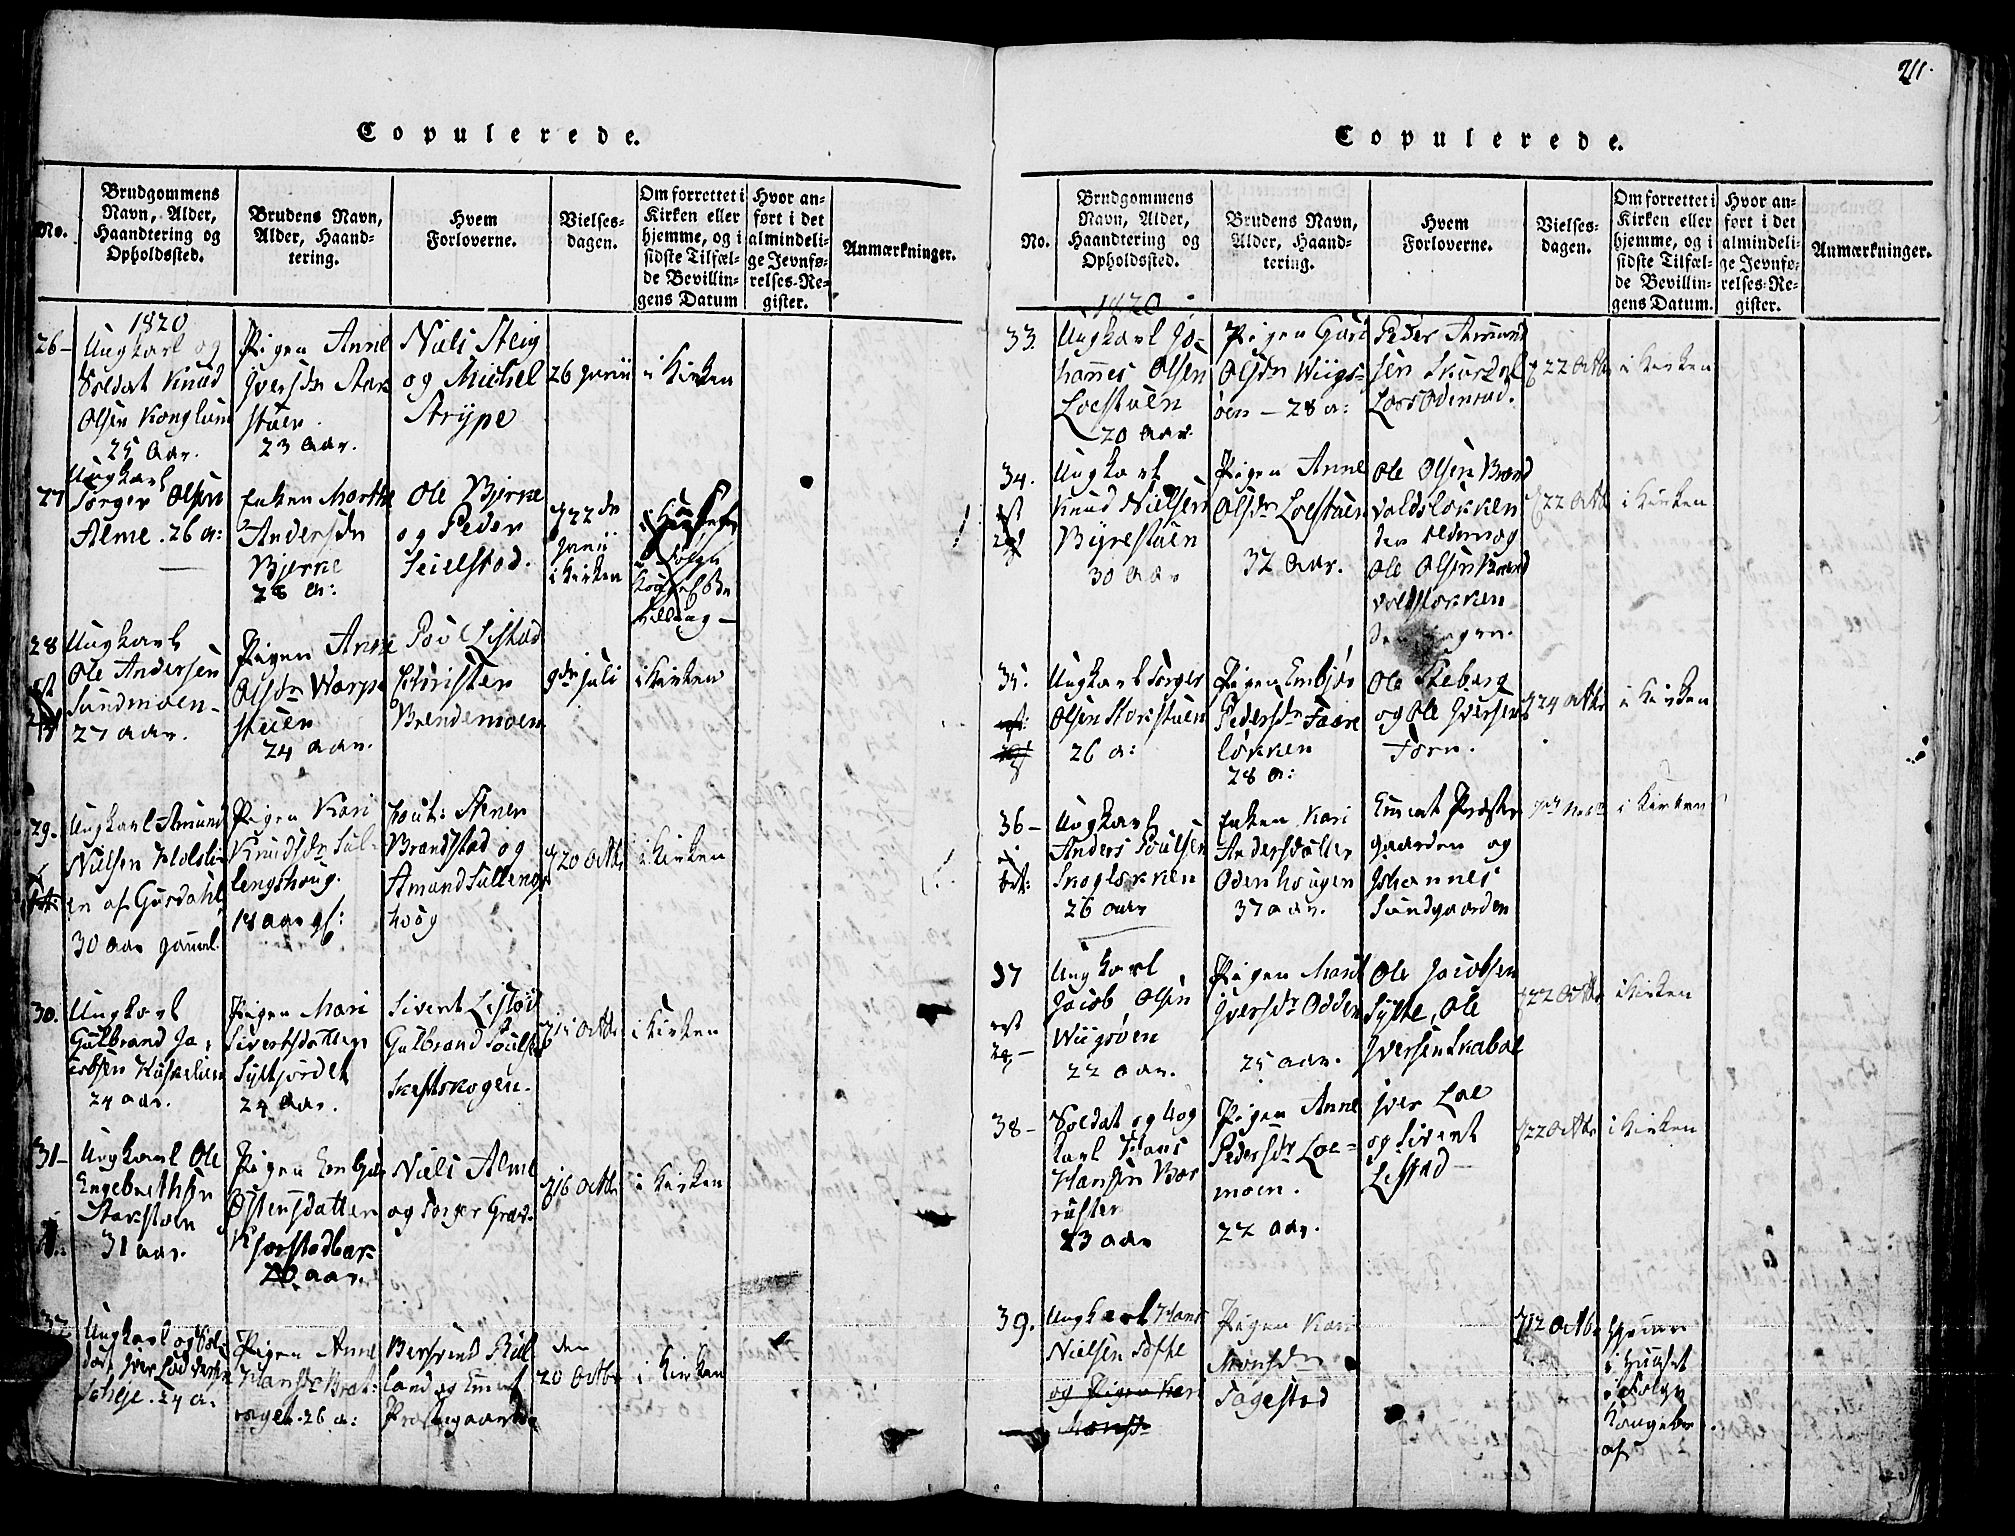 211.
Copulerede.
No.
Brudgommens
Navn, Alder,
Haandtering og
Opholdssted.
Brudens Navn,
Alder, Haand-
tering.
Hvem
Forloverne.
Vielses-
dagen.
Om forrettet i
Kirken eller
hjemme, og i
sidste Tilfæl-
de Bevillin-
gens Datum
Hvor an-
ført i det
almindeli-
ge Jevnfø-
relses-Re-
gister.
Anmærkninger.
1820
26-
Ungkarl og
Soldat Knud
Olsen Konglum
25 Aar.
Pigen Anne
Iversdr
stuen.
23 Aar.
Niels Steig
og Michel
Strype
26 Junii
i Kirken
27
Ungkarl
Torger Olsen
Alme. 26 a:
Enken Marthe
Andersdr
Bjerke
28 a:
Ole Bjerke
og Peder
Seielstad.
22de
Junii
i Kirken
28
Ungkarl
Ole Andersen
Sundmoen-
27 aar.
Pigen Anne
Olsdr Warpe
stuen
24 aar.
Pou Listad
Christen
Brendemoen
9de Juli
i Kirken
29.
Ungkarl Amund
Nielsen Holsli-
en af Gusdahl
30 Aar gaml.
Pigen Kari
Knudsdr Sul-
lengshoug.
18 aar gl:
Stener
Brandstad og
Amund Sulleng
houg
20 Octbr
i Kirken
30.
Ungkarl
Gulbrand Ja-
cobsen Kuskelien
24 aar.
Pigen Mari
Sivertsdatter
Syltjordet
24 Aar.
Sivert Listad
Gulbrand Poulsen
Skeftskogen.
15 Octbr
i Kirken
31-
Ungkarl Ole
Engebrethsen
Storstoen
31 aar.
Pigen
Østensdatter
20 aar.
Niels Alme
og Torger Grav.
16 Octbr
i Kirken
32
Ungkarl og Sol-
dat Iver
24 a.
Pigen Anne
Hansdr Brat-
26 a:
Berswend Rul
land og Emert
Præstegaarden
den
20 Octbr
i Kirken
Copulerede.
No.
Brudgommens
Navn, Alder,
Haandtering og
Opholdssted.
Brudens Navn,
Alder, Haand-
tering.
Hvem
Forloverne.
Vielses-
dagen.
Om forrettet i
Kirken eller
hjemme, og i
sidste Tilfæl-
de Bevillin-
gens Datum.
Hvor an-
ført i det
almindeli-
ge Jevnfø-
relses-Re-
gister.
Anmærkninger.
1820
33.
Ungkarl Jo-
hannes Olsen
Loestuen
20 aar.
Pigen Guri
Olsdr Wiigs-
øen - 28 a:
Peder Amund
sen Skurdal
Lars Odenrud.
22 Octbr
i Kirken
34.
Ungkarl
Knud Nielsen
Byrestuen
30 aar
Pigen Anne
Olsdr Loestuen
32 Aar.
Ole Olsen Brand
voldsløkken
den ældre og
Ole Olsen Brand
voldsløkken
den yngre.
22 Octbr
i Kirken
35.
Ungkarl Torger
Olsen Storstuen
26 a:
Pigen Embjør
Pedersdr Faare
løkken
28 a:
Ole Skeberg
og Ole Iversen
Forr.
24 Octbr
i Kirken
36-
Ungkarl
Anders Poulsen
Skogløkken
26 aar
Enken Kari
Andersdatter
Odenhougen
37 aar.
Emert Præste
gaarden og
Johannes
Sundgaarden
i Kirken
37
Ungkarl
Jacob Olsen
Wiigsøen
22 aar.
Pigen Marit
Iversdr Odden
25 aar.
Ole Jacobsen
Sylte, Ole
Iversen Skabol
22 Octbr
i Kirken
38-
Soldat og Ung
karl Hans
Hansen Bør
ruster
23 aar
Pigen Anne
Pedersdr Loe-
moen.
22 aar.
Iver Loe
og Sivert
Listad
22 Octbr
i Kirken
39.
Ungkarl Hans
Nielsen Tofte
og Pigen Kari
Monsdr
Pigen Kari
Monsdr
Fogestad
12 Octbr
i Huuset
i Følge
Kongebr
af